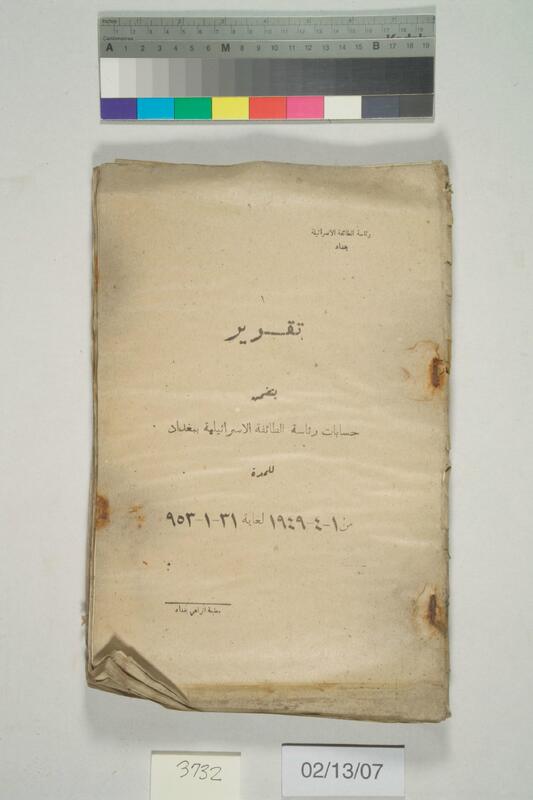 Inches
Centimetres
A 1 2 3 4 5 6 M 8 9 10 11 12 13 14 15 B 17 18 19
رئاسة الطائفة الاسرائيلية
بغداد
تقـــرير
بتضمن
حسابات رئاسة الطائفة الاسرائيلية ببغداد
للمدة
من ١-٤-١٩٤٩ لغاية ٣١-١-٩٥٣
بغداد
3732
02/13/07